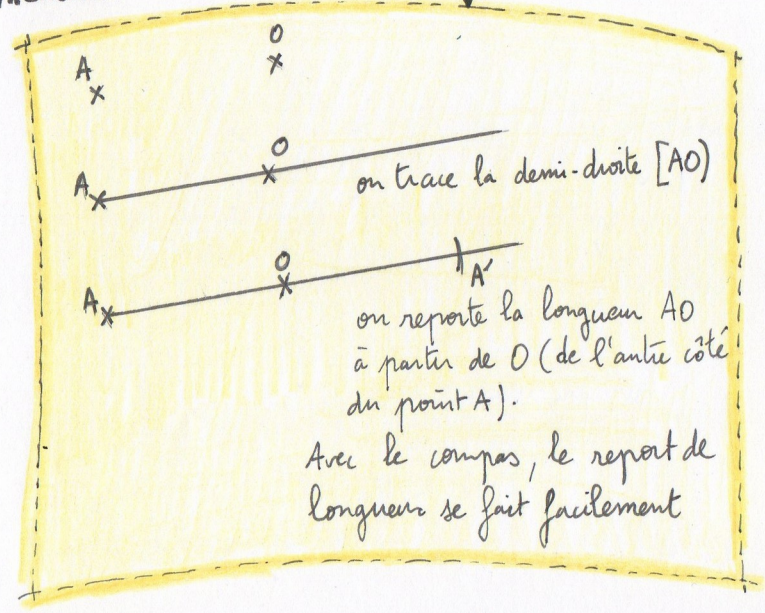 O
A
O
A
on trace la demi-droite [AO)
O
A
A'
on reporte la longueur AO
à partir de O (de l'autre côté
du point A).
Avec le compas, le report de
longueur se fait facilement